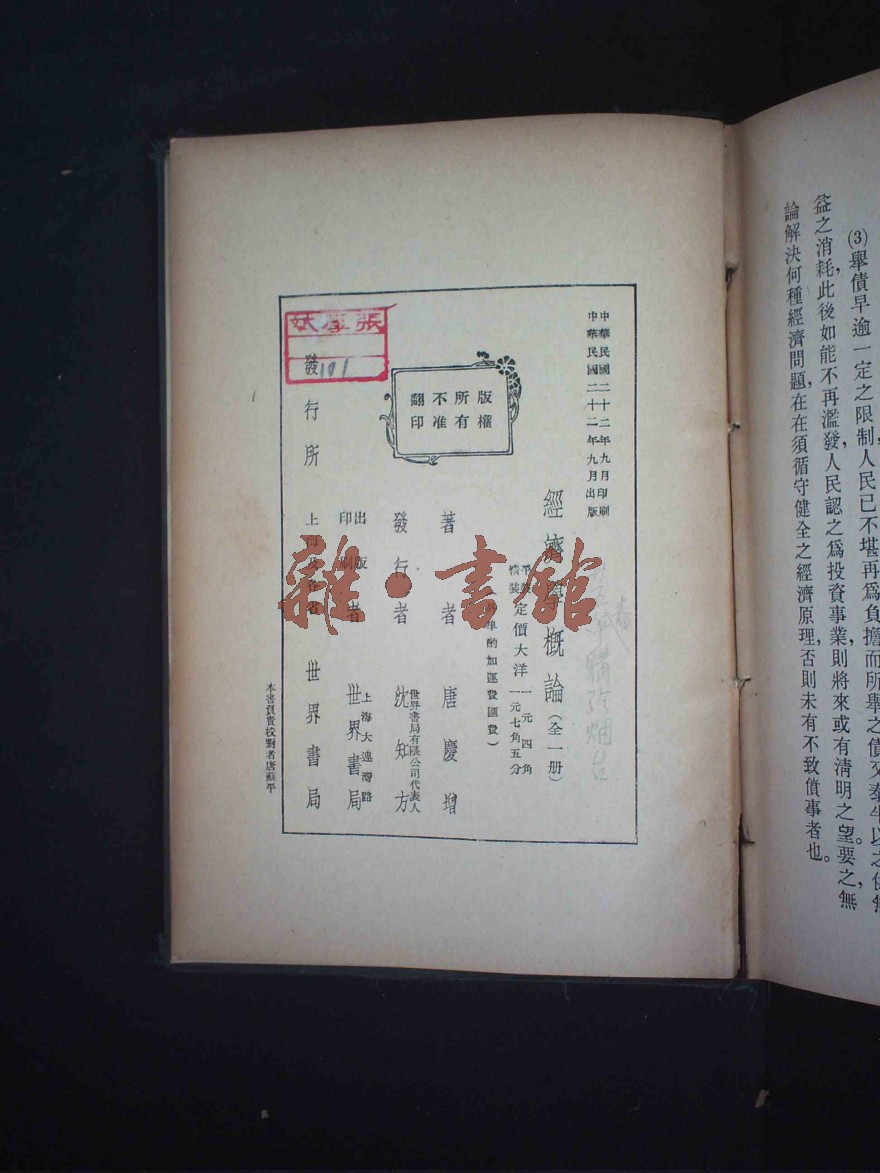 (3)舉債早逾一定之限制,人民已不堪再爲負擔,而所舉之債又泰半以之供無
益之消耗,此後如能不再濫發,人民認之爲投資事業,則將來或有淸明之望。要之,無
論解決何種經濟問題,在在須循守健全之經濟原理,否則未有不致僨事者也。
中華民國二十二年九月印刷
中華民國二十二年九月出版
經濟學概論(全一册)
平裝 定價大洋 一元四角
精裝 定價大洋 一元七角五分
酌加運費匯費)
版權
所有
不准
翻印
著者 唐慶增
發行者 世界書局有限公司代表人 沈知方
出版印刷者 上海大連灣路 世界書局
發行所 上海及各省 世界書局
本書負責校對者唐蘇平
101
雜·書館